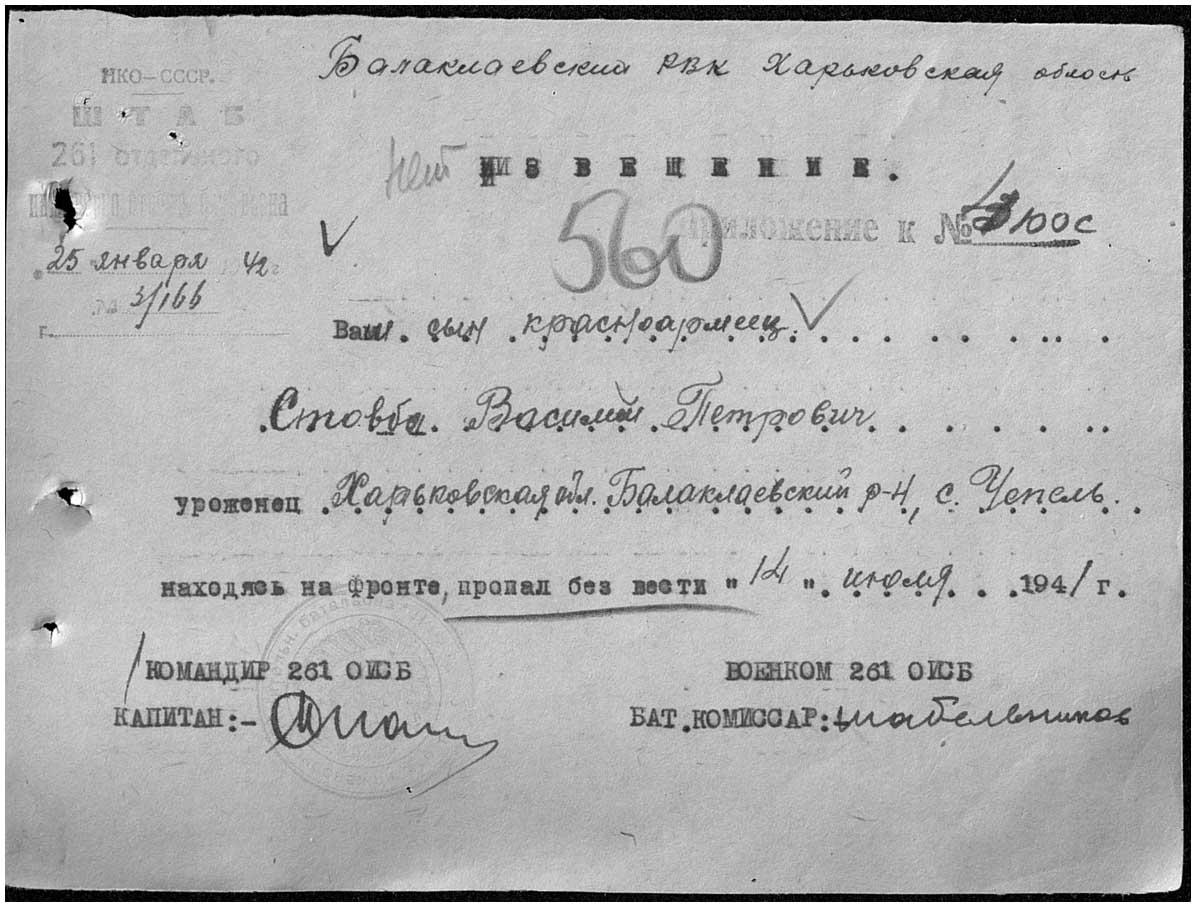 Балаклаевский РВК Харьковская область
НКО-СССР.
ШТАБ
261 отдельного
25 января 42 г
№ 3/166
г.
нет
ИЗВЕЩЕНИЕ.
560
Приложение к № юос
Ваш. сын красноармеец.
Стовба Василий Петрович
уроженец Харьковская обл. Балаклаевский р-н, с. Чепель.
находясь на фронте, пропал без вести " 14 " июля 1941 г.
КОМАНДИР 261 ОИСБ
КАПИТАН:-
ВОЕНКОМ 261 ОИСБ
БАТ.КОМИССАР: